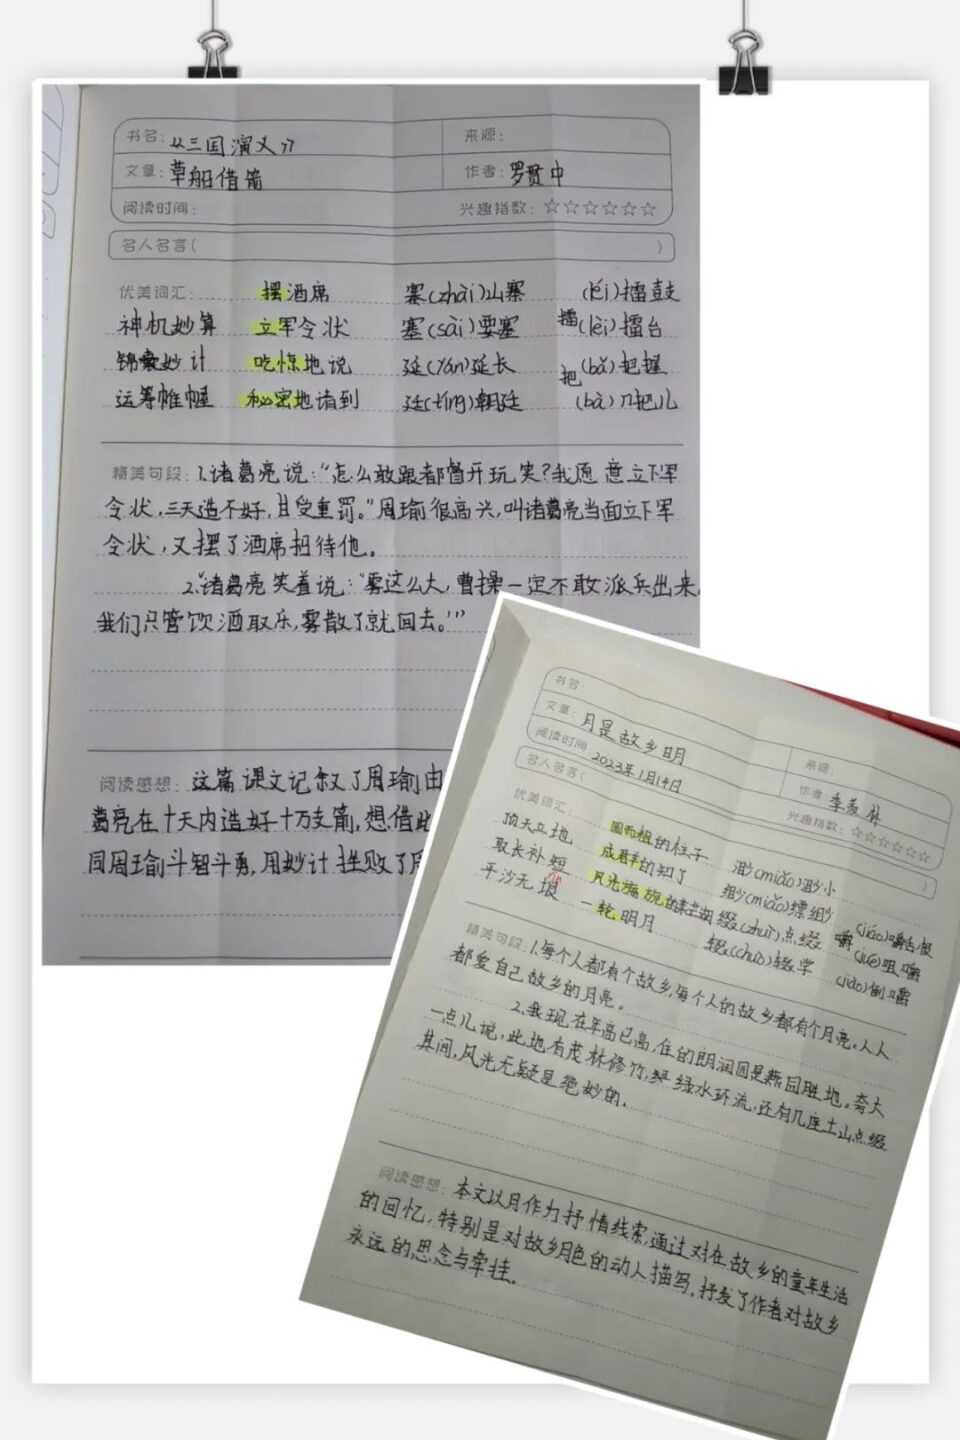 书名：《三国演义》 来源：
文章：草船借箭 作者：罗贯中
阅读时间： 兴趣指数：☆☆☆☆☆☆
名人名言（ ）
优美词汇： 摆酒席 寨(zhài)山寨 (léi)擂鼓
神机妙算 立军令状 塞(sài)要塞 擂(lèi)擂台
锦囊妙计 吃惊地说 延(yán)延长 把(bǎ)把握
运筹帷幄 秘密地请到 廷(tíng)朝廷 (bà)刀把儿
精美句段：1.诸葛亮说：“怎么敢跟都督开玩笑？我愿意立下军
令状，三天造不好，甘受重罚。”周瑜很高兴，叫诸葛亮当面立下军
令状，又摆了酒席招待他。
2.“诸葛亮笑着说：‘雾这么大，曹操一定不敢派兵出来。
我们只管饮酒取乐，雾散了就回去。’”
阅读感想：这篇课文记叙了周瑜由
葛亮在十天内造好十万支箭，想借此
同周瑜斗智斗勇，用妙计挫败了周
书名：
文章：月是故乡明 来源：
阅读时间：2023年1月14日 作者：季羡林
名人名言（ ） 兴趣指数：☆☆☆☆☆☆
优美词汇：
顶天立地 圆而粗的柱子 渺(miǎo)渺小
取长补短 成群的知了 缈(miǎo)缥缈 (jiáo)嚼舌根
平沙无垠 yín 风光旖旎的 缀(zhuì)点缀 嚼(jué)咀嚼
一轮明月 辍(chuò)辍学 (jiào)倒嚼
精美句段：1.每个人都有个故乡，每个人的故乡都有个月亮，人人
都爱自己故乡的月亮。
2.我现在年高已高，住的朗润园是燕园胜地。夸大
一点儿说，此地有茂林修竹，绿水环流，还有几座土山点缀
其间，风光无疑是绝妙的。
阅读感想：本文以月作为抒情线索，通过对在故乡的童年生活
的回忆，特别是对故乡月色的动人描写，抒发了作者对故乡
永远的思念与牵挂。